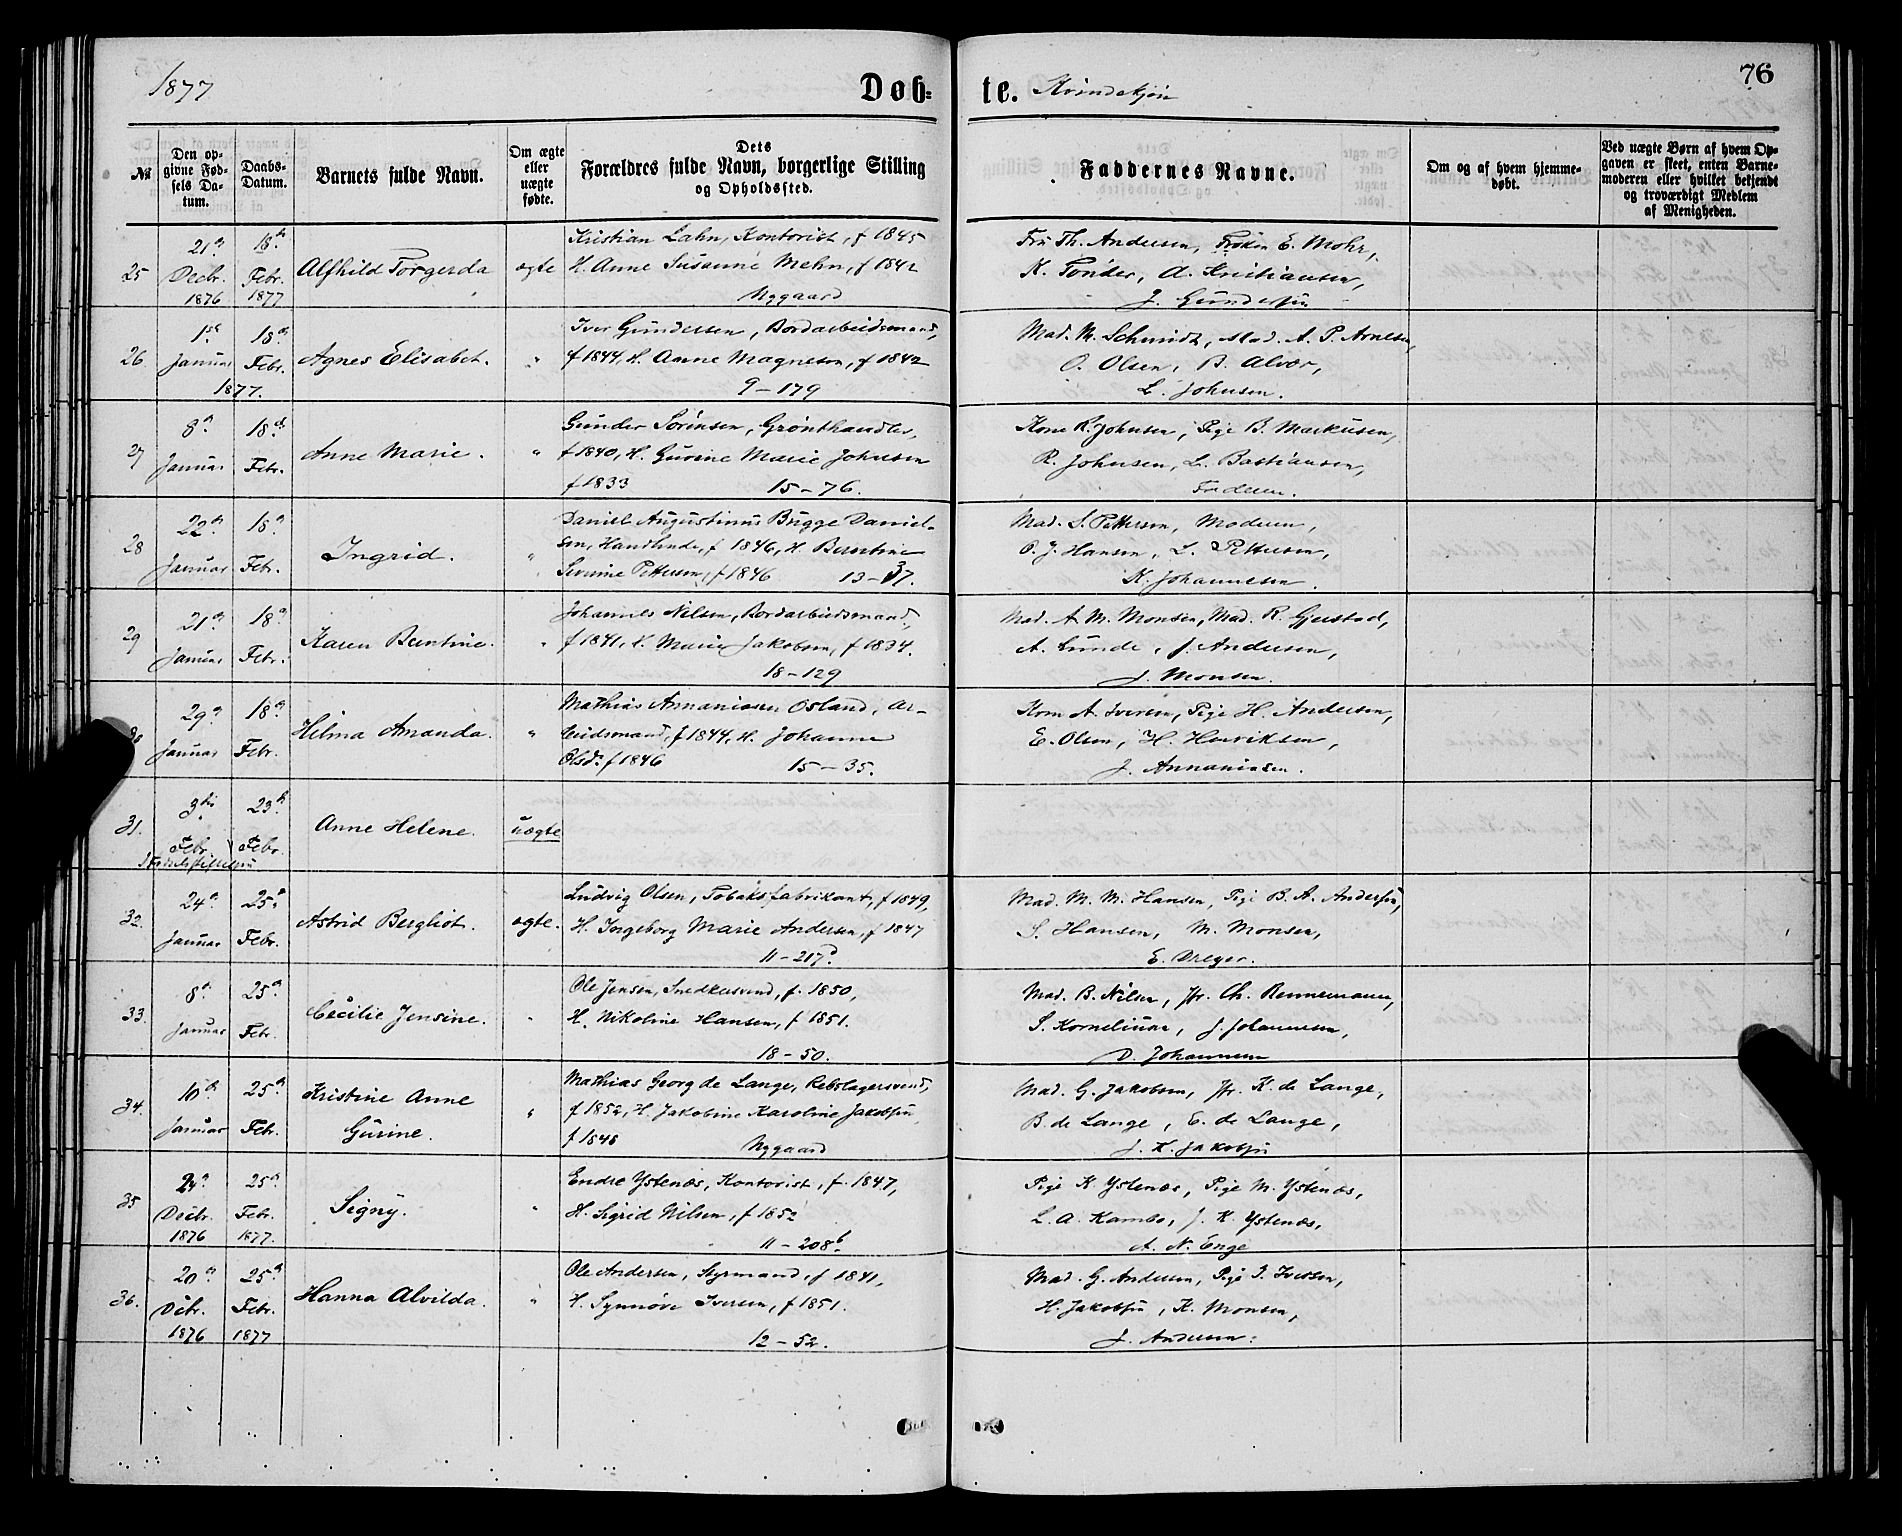 1877
Døb-
te. Kvindekjøn
76
№
Den opgivne Fødsels Datum.
Daabs-Datum.
Barnets fulde Navn.
Om ægte eller uægte fødte.
Dets Forældres fulde Navn, borgerlige Stilling og Opholdssted.
Faddernes Navne.
Om og af hvem hjemmedøbt.
Ved uægte Børn af hvem Opgaven er skeet, enten Barnemoderen eller hvilket bekjendt og troværdigt Medlem af Menigheden.
25
21de Decbr. 1876
18de Febr. 1877
Alfhild Torgerda
ægte
Kristian Lahn, Kontorist, f 1845
H. Anne Susanne Mehn, f 1842
Nygaard
Fru Th. Andersen, Frøken E. Mohr,
K. Tønder, A. Kristiansen,
J. Gundersen
26.
1ste Januar 1877.
18de Febr.
Agnes Elisabet.
"
Iver Gundersen, Bordarbeidsmand,
f 1844, H. Anne Magnesen, f 1842
9-179
Mad. M. Schmidt, Mad. A. P. Arnesen,
O. Olsen, B. Alvær,
L. Johnsen.
27
8de Januar
18de Febr.
Anne Marie.
"
Gunder Sørensen, Grønthandler,
f 1840, H. Gurine Marie Johnsen
f 1833 15-76.
Kone R. Johnsen, Pige B. Markusen,
R. Johnsen, L. Bastiansen,
Faderen.
28
22de Januar
18de Febr.
Ingrid.
"
Daniel Augustinus Bugge Daniel-
sen, Handlende, f 1846, H. Berentine
Severine Pettersen, f 1846 13-37.
Mad. S. Pettersen, Moderen,
O. J. Hansen, L. Pettersen,
K. Johannesen.
29
21de Januar
18de Febr.
Karen Berntine.
"
Johannes Nilsen, Bordarbeidsmand,
f 1841, H. Marie Jakobsen, f 1834.
18-129
Mad. A. M. Monsen, Mad. R. Gjerstad,
A. Lunde, J. Andersen,
J. Monsen.
30
29de Januar
18de Febr.
Helma Amanda.
"
Mathias Annaniasen Osland, Ar-
beidsmand, f 1844, H. Johanne
Olsdr. f 1846 15-35.
Kone A. Iversen, Pige H. Andersen,
E. Olsen, H. Henriksen,
J. Annaniasen.
31.
3die Febr.
23de Febr.
I Fødselsstiftelsen
Anne Helene.
uægte
32.
24de Januar
25de Febr.
Astrid Bergliot.
ægte.
Ludvig Olsen, Tobaksfabrikant, f 1849,
H. Ingeborg Marie Andersen, f 1847
11-217d.
Mad. M. M. Hansen, Pige B. A. Andersen,
S. Hansen, M. Monsen,
E. Dreyer.
33.
8de Januar
25de Febr.
Cecilie Jensine.
"
Ole Jensen, Snedkersvend, f. 1850,
H. Nikoline Hansen, f 1851.
18-50.
Mad. B. Nilsen, Jfr. Ch. Rennemann,
S. Korneliusen, J. Johannesen,
D. Johannesen
34.
10de Januar
25de Febr.
Kristine Anne
Gurine.
"
Mathias Georg de Lange, Rebslagersvend,
f 1852, H. Jakobine Karoline Jakobsen
f 1848 Nygaard
Mad. G. Jakobsen, Jfr. K. de Lange,
B. de Lange, E. de Lange,
J. K. Jakobsen
35
24de Decbr. 1876
25de Febr. 1877.
Signy.
"
Endre Ystenæs, Kontorist, f. 1847,
H. Sigrid Nilsen, f 1852
11-208b.
Pige K. Ystenæs, Pige M. Ystenæs,
L. A. Kambo, J. K. Ystenæs,
A. N. Enge
36.
20de Decbr. 1876
25de Febr. 1877
Hanna Alvilda.
"
Ole Andersen, Styrmand, f 1841,
H. Synnøve Iversen, f 1851.
12-52.
Mad. G. Andersen, Pige I. Iversen,
H. Jakobsen, K. Monsen,
J. Andersen.